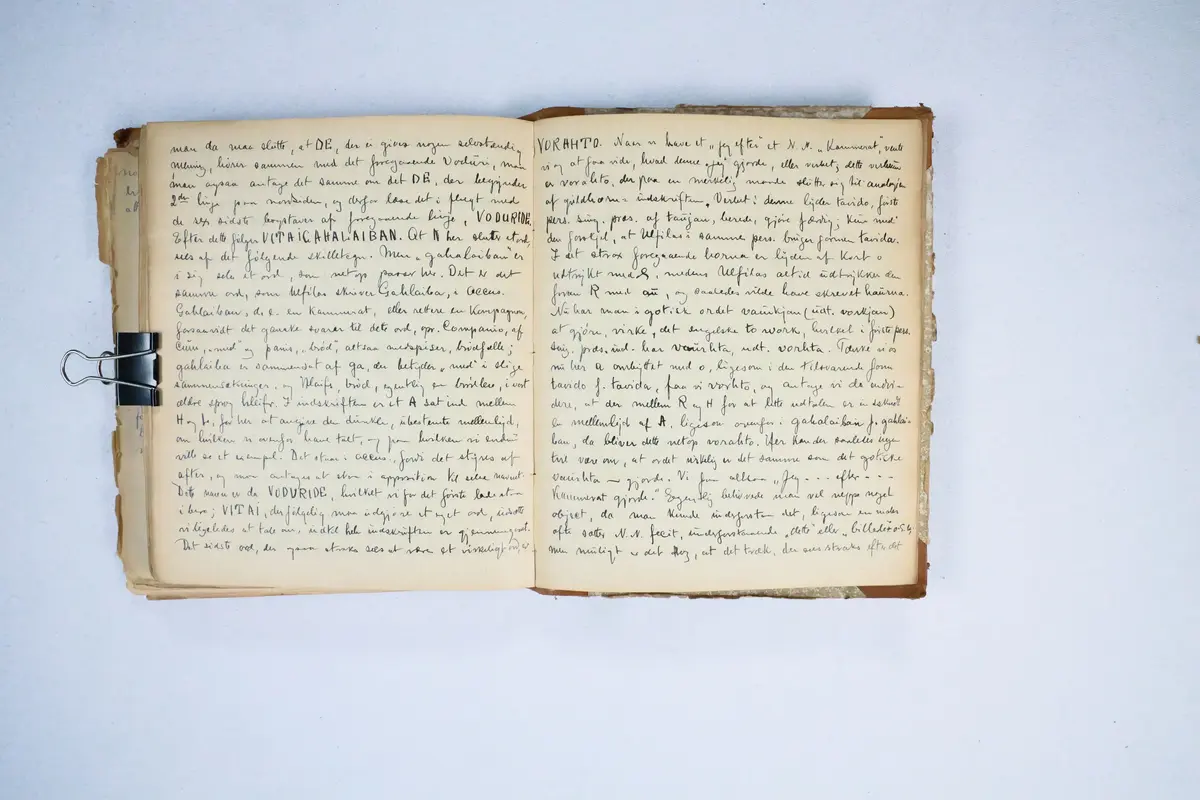 man da maa slutte, at DE, der ei giver nogen selvstændig
mening, hører sammen med det foregaaende Voduri, maa
man ogsaa antage det samme om det DE, der begynder
2den linje paa nordsiden, og derfor læse det i flugt med
de sex sidste bogstaver af foregaaende linje, VODURIDE.
Efter dette følger VITAIGAHALAIBAN. At N her slutter et ord,
sees af det følgende skilletegn. Men „gahalaiban" er
i sig selv et ord, som netop passer her. Det er det
samme ord, som Ulfilas skriver Gahlaiba, i accus.
Gahlaiban, d. e. en kammerat, eller rettere en Kompagnon,
forsaavidt det ganske svarer til dets ord, opr. Companio, af
cum, „med" og panis, „brød", altsaa medspiser, brødfælle;
gahlaiba er sammensat af ga, der betyder „med" i slige
sammensætninger, og hlaifs, brød, egentlig en brødlev, i vort
ældre sprog hleifr. I indskriften er et A sat ind mellem
H og L, for her at angive den dunkle, ubestemte mellemlyd,
om hvilken vi ovenfor have talt, og paa hvilken vi endnu
ville se et exempel. Det staar i accus., fordi det styres af
after, og maa antages at staa i apposition til selve navnet.
Dette navn er da VODURIDE, hvilket vi for det første lade staa
i bero; VITAI, derfølgelig maa udgjøre et eget ord, udsætte
vi ligeledes at tale om, indtil hele indskriften er gjennemgaaet.
Det sidste ord, der ogsaa straks sees at være et virkeligt ord, er
VORAHTO. Naar vi have et „jeg efter" et N. N. „Kammerat", vente
vi og at faa vide, hvad denne „jeg" gjorde, eller verbet; dette verbum
er vorahto, der paa en merkelig maade slutter sig til analogien
af guldhorn-indskriften. Verbet i denne lyder tavido, første
pers. sing. præs. af taujan, berede, gjøre færdig; kun med
den forskjel, at Ulfilas i samme pers. bruger formen tavida.
I det strax foregaaende horna er lyden af kort o
udtrykt med o, medens Ulfilas altid udtrykker den
foran R med au, og saaledes vilde have skrevet haurna.
Nu har man i gotisk ordet vaurkjan (udt. vorkjan)
at gjøre, virke, det engelske to work, hvilket i første pers.
sing. præs. ind. har vaurhta, udt. vorhta. Tænke vi os
nu her A ombyttet med o, ligesom i den tilsvarende form
tavido f. tavida, faa vi vorhto, og antage vi da endvi-
dere, at der mellem R og H for at lette udtalen er indskudt
en mellemlyd af A, ligesom ovenfor i gahalaiban f. gahlai-
ban, da bliver dette netop vorahto. Her kan der saaledes ingen
tvivl være om, at ordet virkelig er det samme som det gotiske
vaurhta — gjorde. Vi faa altsaa „Jeg - - - efter - - -
Kammerat gjorde." Egentlig behøvede man vel neppe noget
object, da man kunde underforstaa det, ligesom en maler
ofte sætter N. N. fecit, underforstaaende „dette" eller „billedet"
men muligt er det dog, at det træk, der sees straks efter det